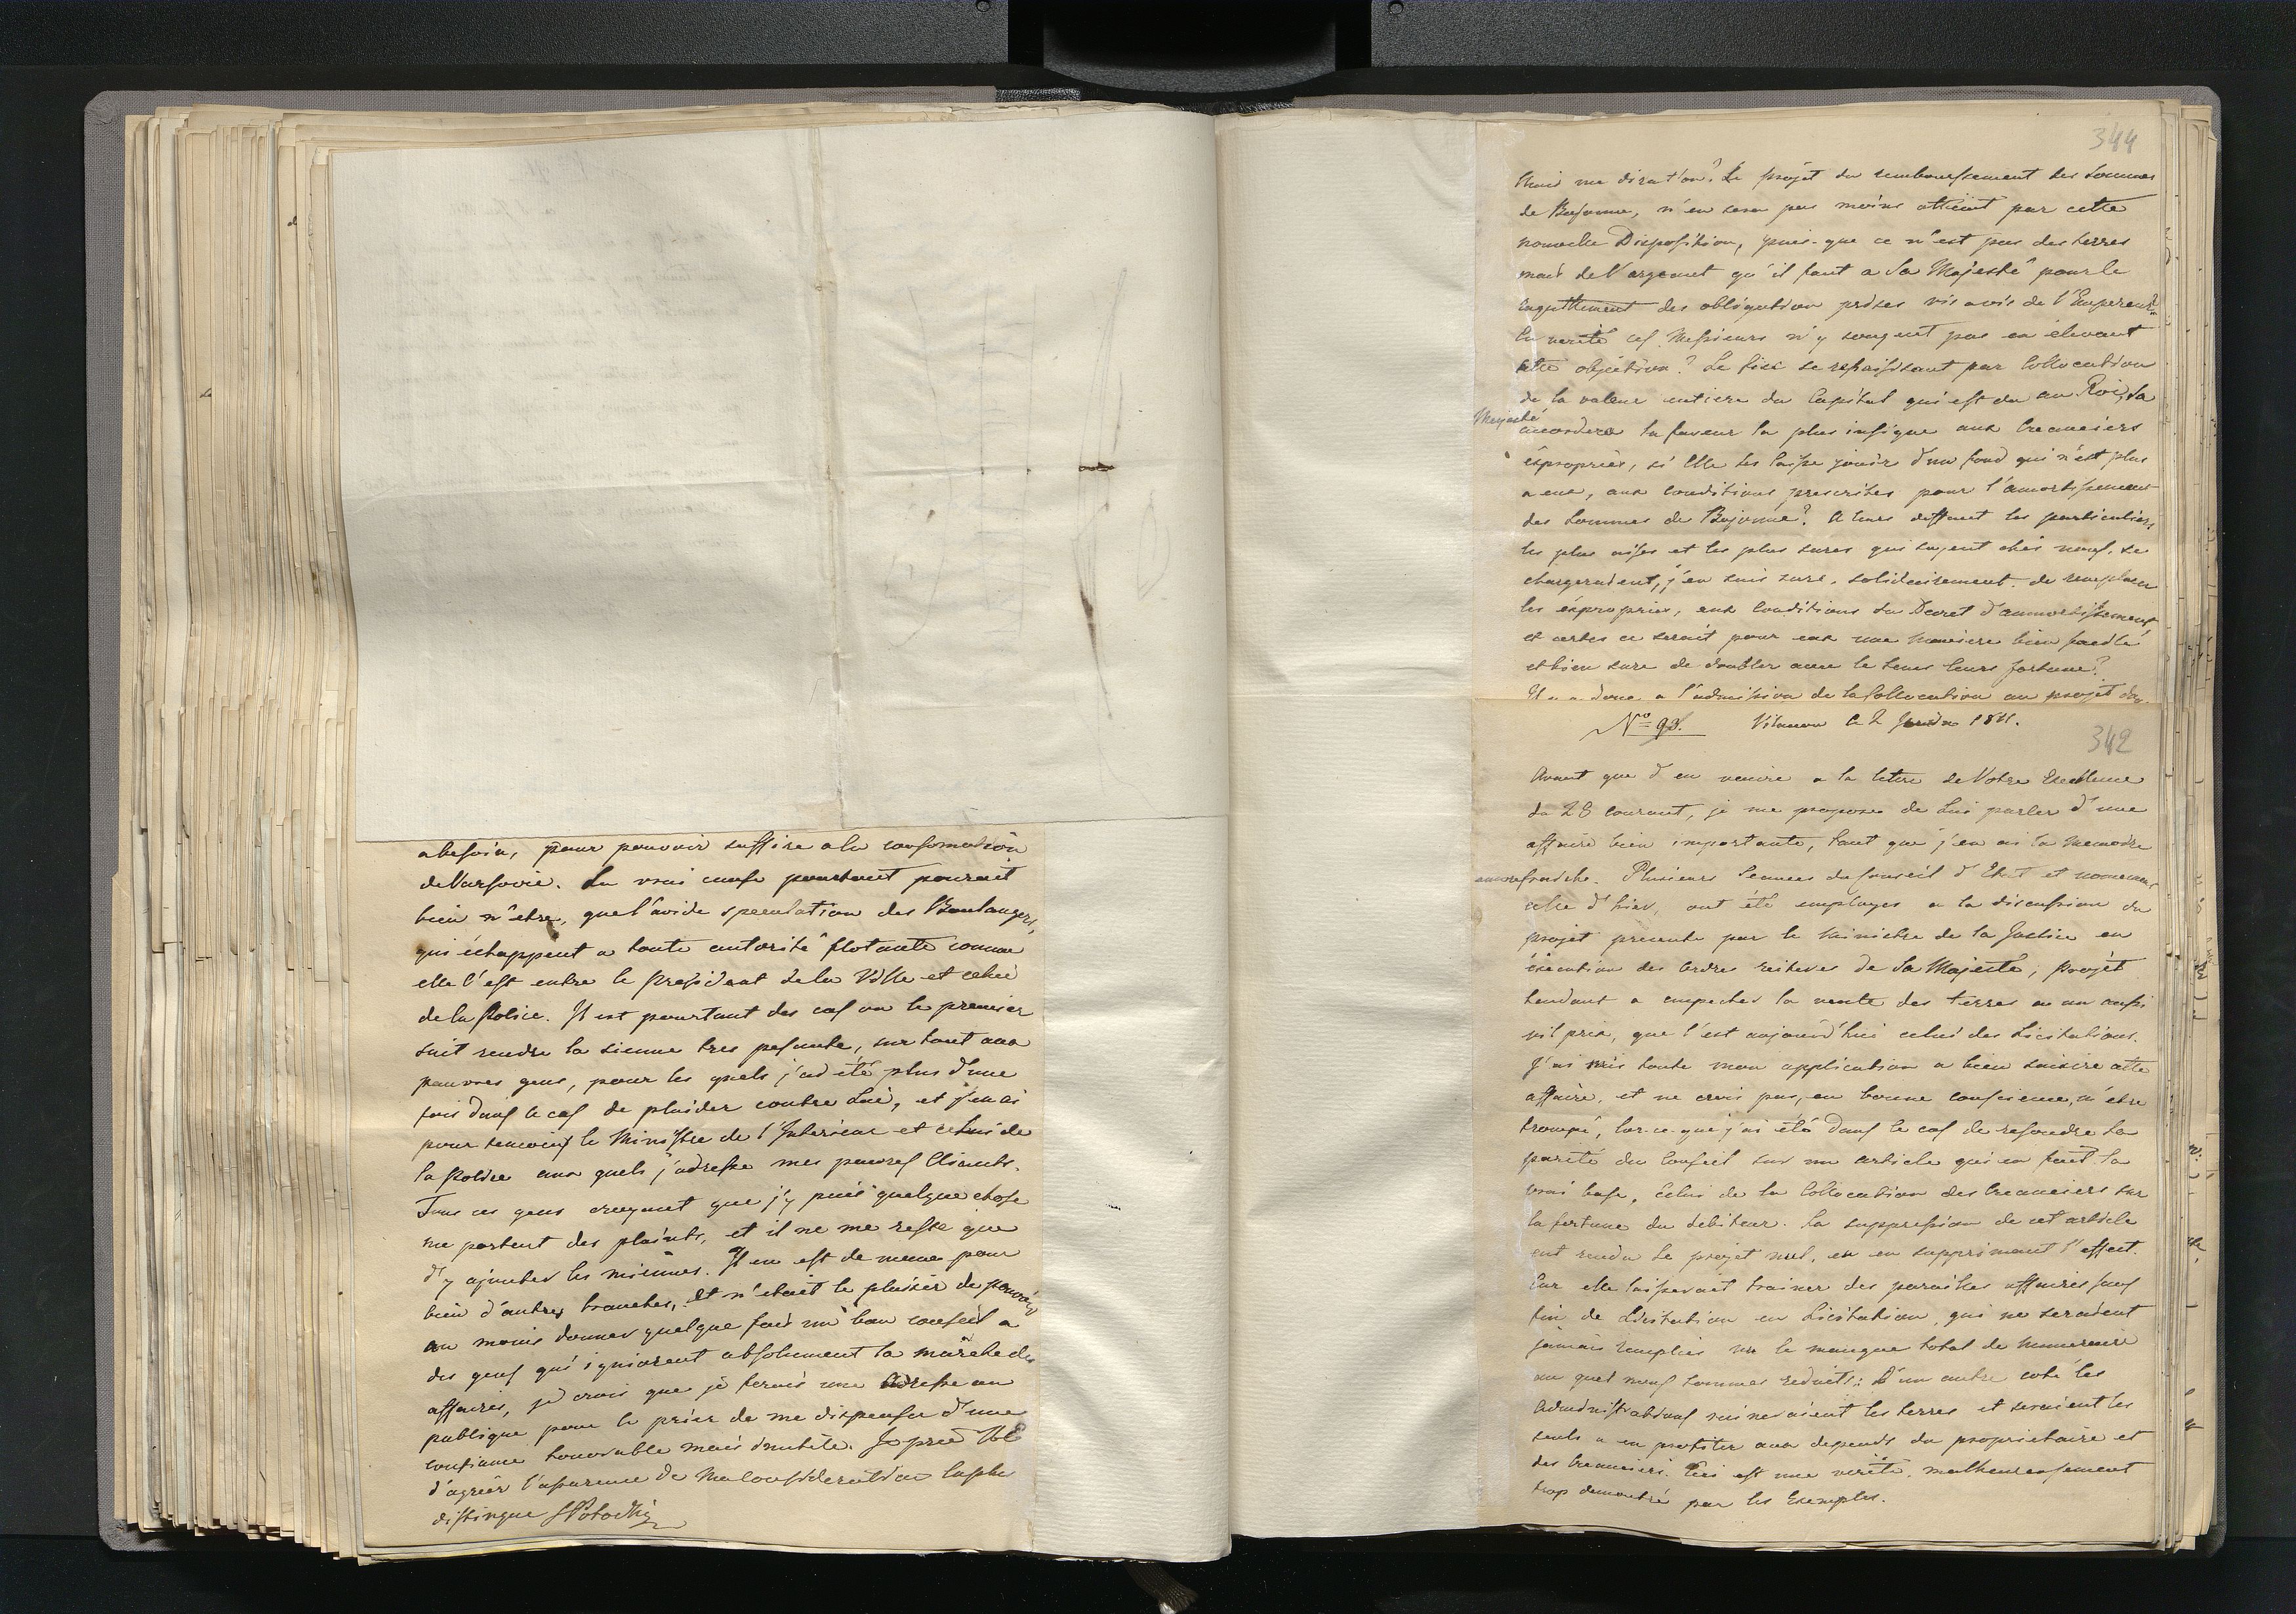 a besoin, pour pouvoir suffire a la consomation
de Varsovie. La vrai cause pourtant pourait
bien n'etre, que l'avide speculation des Boulangers,
qui échappent a toute autorité flotante comme
elle l'est entre le President de la Ville et celui
de la Police. Il est pourtant des cas ou le premier
sait rendre la sienne tres pesante, sur tout aux
pauvres gens, pour les quels j'ai été plus d'une
fois dans le cas de plaider contre Lui, et j'en ai
pour temoins le Ministre de l'Interieur et celui de
la Police aux quels j'adresse mes pauvres Clients.
Tous ces gens croyant que j'y puis quelque chose
me portent des plaints, et il ne me reste que
d'y ajouter les miennes. Il en est de meme pour
bien d'autres branches, et n'etait le plaisir de pouvoir
au moins donner quelque fois un bon conseil a
des gens qui ignorent absolument la marche des
affaires, je crois que je ferais une Adresse au
publique pour le prier de me dispenser d'une
confiance honorable mais inutile. Je prie VE
d'agréer l'assurance de ma consideration la plus
distingue SPotocki
344
Mais me dira t'on? Le projet du remboursement des Sommes
de Bajonne, n'en sera pas moins atteint par cette
nouvelle Disposition, puis-que ce n'est pas des terres
mais de l'argent qu'il faut a Sa Majesté pour le
aquittement des obligation prises vis a vis de l'Empereur?
En verité ces Messieurs n'y songent pas en élevant
cette objection? Le fisc se resaisissant par Collocation
de la valeur entiere du Capital qui est du au Roi, Sa
Majesté
accordera la faveur la plus insigne aux Creanciers
éxpropriés, si Elle les laisse jouir d'un fond qui n'est plus
a eux, aux conditions prescrites pour l'amortissement
des Sommes de Bajonne? A leurs deffaut les particuliers
les plus aises et les plus sures qui soyent chés nous, se
chargeraient, j'en suis sure, solidairement de remplacer
les éxpropriés, aux Conditions du Decret d'ammortissement
et certes ce serait pour eux une maniere bien facile
et bien sure de doubler avec le tems leurs fortune?
Il y a donc a l'admission de la Collocation au projet du
No 93. Vilanow le 2 1811.
342
Avant que d'en venire a la lettre de Votre Excellence
du 26 courant, je me propose de Lui parler d'une
affaire bien importante, tant que j'en ai la memoire
encore fraiche. Plusieurs Seances du Conseil d'Etat et nomement
celle d'hier, ont été employes a la discussion du
projet presenté par le Ministre de la Justice en
éxecution des Ordres reiterés de Sa Majesté, projet
tendant a empecher la vente des terres a un aussi
vil prix, que l'est aujourd'hui celui des Licitations.
J'ai mis toute mon application a bien saisire cette
affaire, et ne crois pas, en bonne conscience, m'etre
trompé, lors-ce-que j'ai été dans le cas de resoudre la
parité du Conseil sur un article qui en fait la
vrai base, celui de la Collocation des Creanciers sur
la fortune du debiteur. La suppression de cet article
eut rendu le projet nul, en en supprimant l'effect.
Car elle laisserait trainer des pareilles affaires sans
fin de Licitation en Licitation, qui ne seraient
jamais remplies vu le manque total de numeraire
au quel nous sommes reduits; D'un autre coté les
Administrations ruineraient les terres et seraient les
seuls a en profiter aux depends du proprietaire et
des Creanciers. Ceci est une verité, malheureusement
trop demontré par les Exemples.